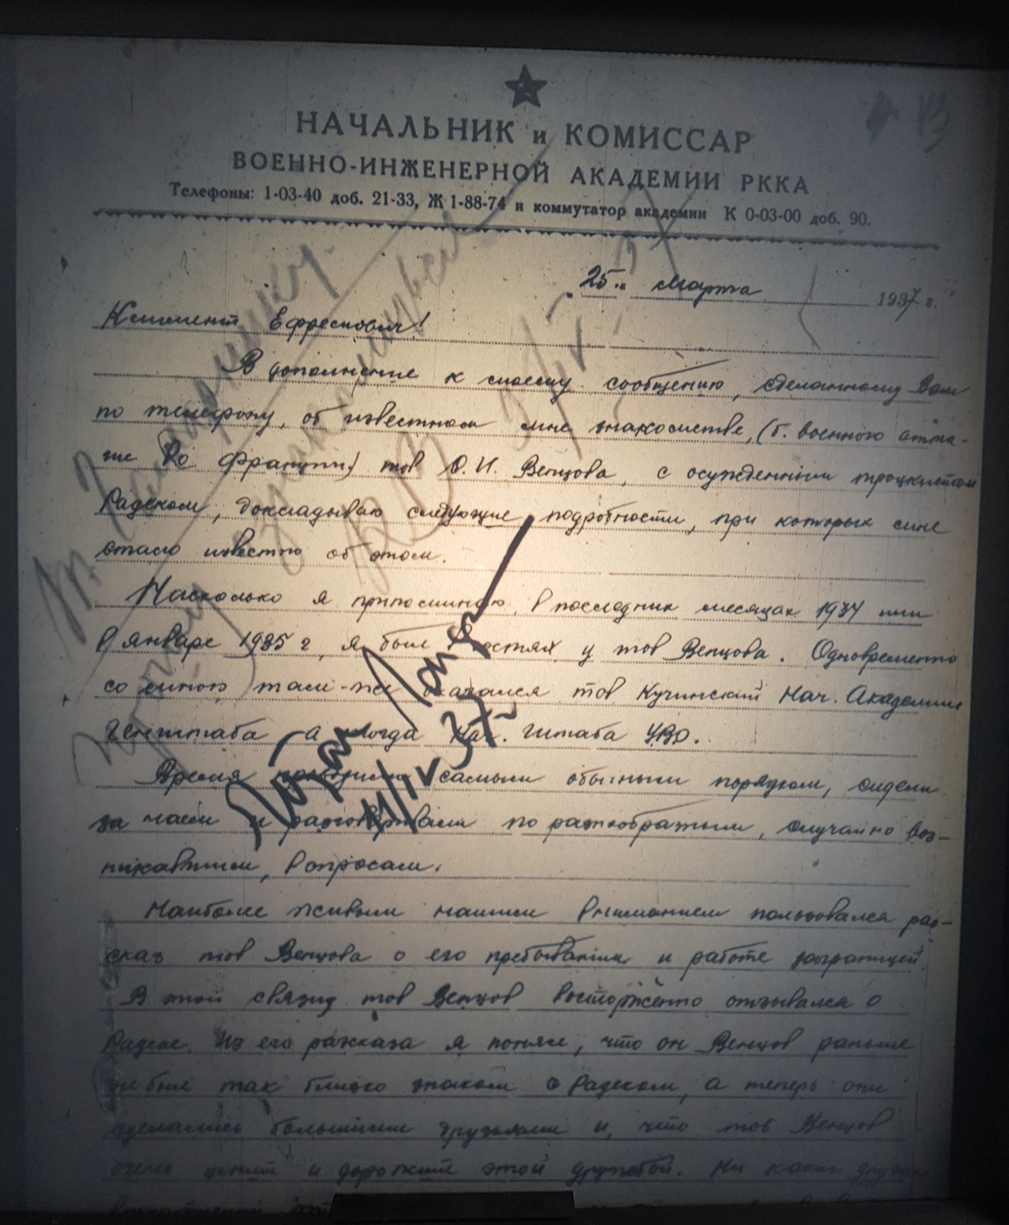 НАЧАЛЬНИК и КОМИССАР
ВОЕННО-ИНЖЕНЕРНОЙ АКАДЕМИИ РККА
Телефоны: 1-03-40 доб. 21-33, Ж 1-88-74 и коммутатор академии К 0-03-00 доб. 90.
25 " Марта 1937 г.
Климент Ефремович!
В дополнение к моему сообщению, сделанному Вам
по телефону, об известном мне знакомстве, (б. военного атта-
ше во Франции) тов О.И. Венцова, с осужденным троцкистом
Радеком, докладываю следующие подробности, при которых мне
стало известно об этом.
Насколько я припоминаю, в последних месяцах 1934 или
в январе 1935 г, я был в гостях у тов Венцова. Одновременно
со мною там-же оказался тов Кучинский Нач. Академии
Генштаба а тогда Нач. штаба УВО.
Время самым обычным порядком, сидели
за чаем и разговаривали по разнообразным, случайно воз-
никавшим, вопросам.
Наиболее живым нашим вниманием пользовался рас-
сказ тов Венцова о его пребывании и работе заграницей.
В этой связи тов Венцов восторженно отзывался о
Радеке. Из его рассказа я понял, что он Венцов раньше
не был так близко знаком с Радеком, а теперь они
сделались большими друзьями и, что тов Венцов
очень ценит и дорожит этой дружбой. Ни каких других
11/IV 37